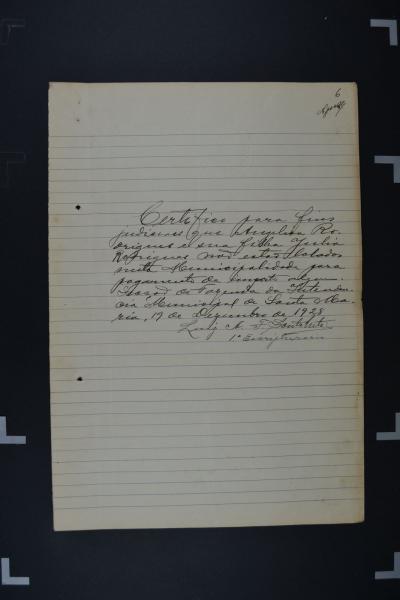 6
Certifico para fins
judiciaes que Amelia Ro-
drigues e sua filha Julia
Rodrigues não estão lotados
nesta Municipalidade para
pagamento de imposto algum.
de Fazenda da Intenden-
cia Municipal de Santa Ma-
ria, 17 de Dezembro de 1928
Luiz
1º Escripturario